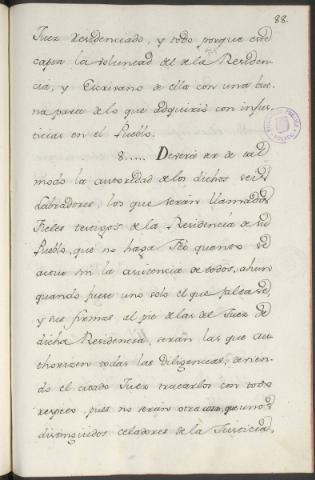 88.
Juez Residenciado, y todo porque este
capta la voluntad del de la Residen-
cia, y Escrivano de ella con una bue-
na parte de lo que adquirió con injus-
ticias en el Pueblo.
8..... Deverá ser de tal
modo la autoridad de los dichos seis
Labradores, los que serán llamados
Fieles testigos de la Residencia de su
Pueblo, que no haga Fé quanto se
actue sin la asistencia de todos, ahun
quando fuere uno solo el que faltase,
y sus firmas al pie de las del Juez de
dicha Residencia, serán las que au-
thorizen todas las Diligencias, devien-
do el citado Juez tratarlos con todo
respeto, pues no serán otra cosa que unos
distinguidos celadores de la Justicia,